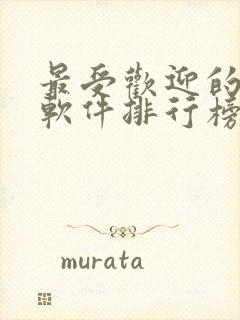 最受歡迎的
軟件排行榜
murata